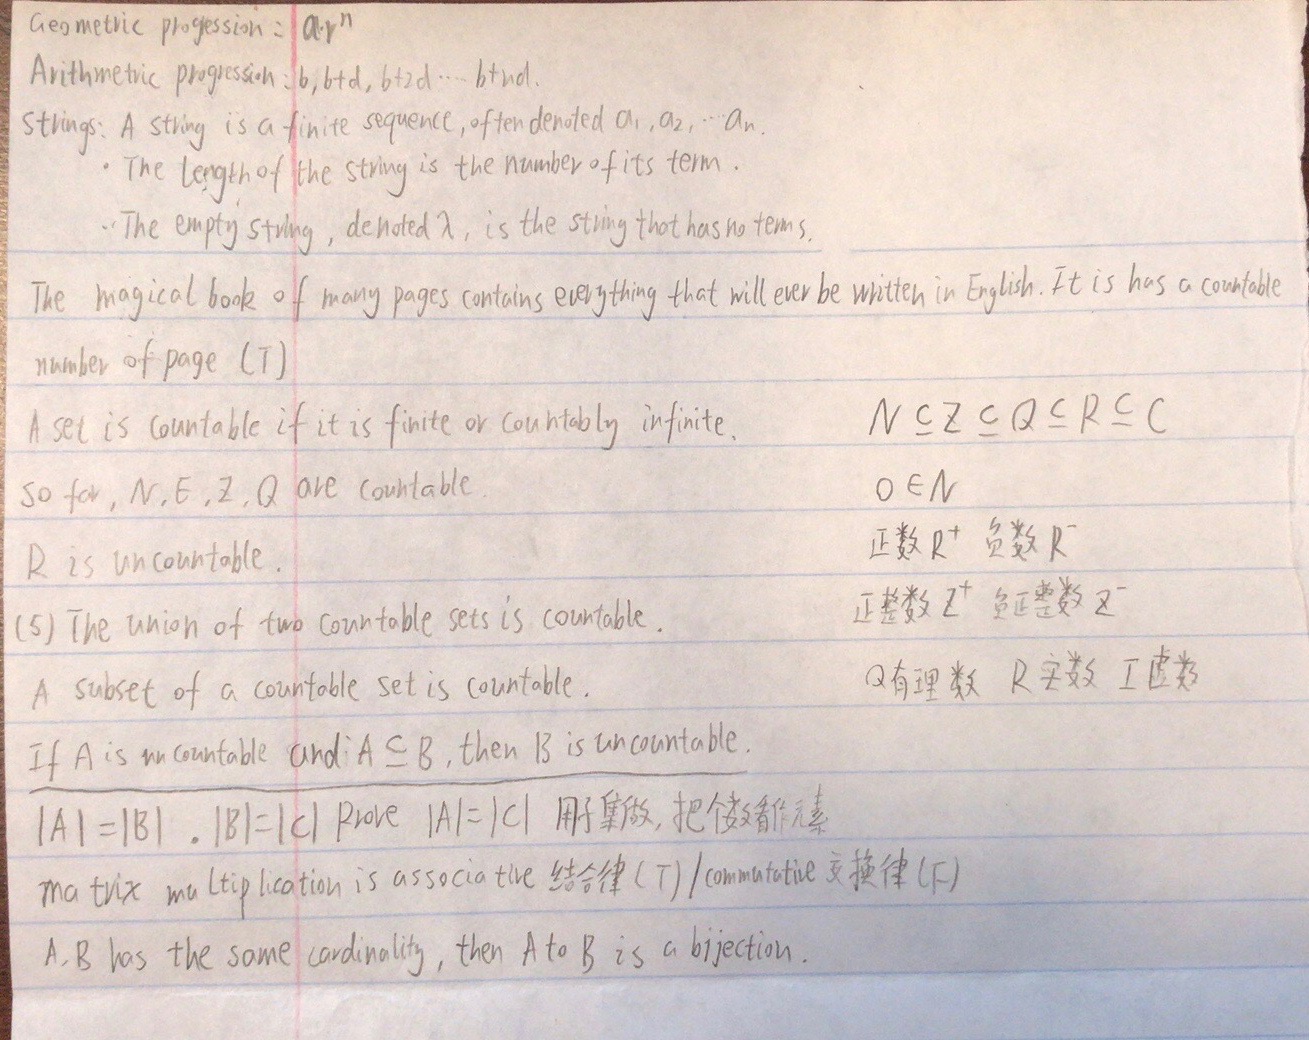 Geometric progession: a·rⁿ
Arithmetric progression: b, b+d, b+2d ... b+nd.
Strings: A string is a finite sequence, often denoted a₁, a₂, ... aₙ.
· The length of the string is the number of its term.
· The empty string, denoted λ, is the string that has no terms.
The magical book of many pages contains everything that will ever be written in English. It is has a countable
number of page (T)
A set is countable if it is finite or countably infinite.
N ⊆ Z ⊆ Q ⊆ R ⊆ C
So far, N, E, Z, Q are countable.
0 ∈ N
R is uncountable.
正数 R⁺ 负数 R⁻
(5) The union of two countable sets is countable.
正整数 Z⁺ 负正整数 Z⁻
A subset of a countable set is countable.
Q有理数 R实数 I虚数
If A is uncountable and A ⊆ B, then B is uncountable.
|A|=|B| . |B|=|C| Prove |A|=|C| 用子集做, 把个数看作元素
matrix multiplication is associative 结合律 (T) / commutative 交换律 (F)
A, B has the same cardinality, then A to B is a bijection.